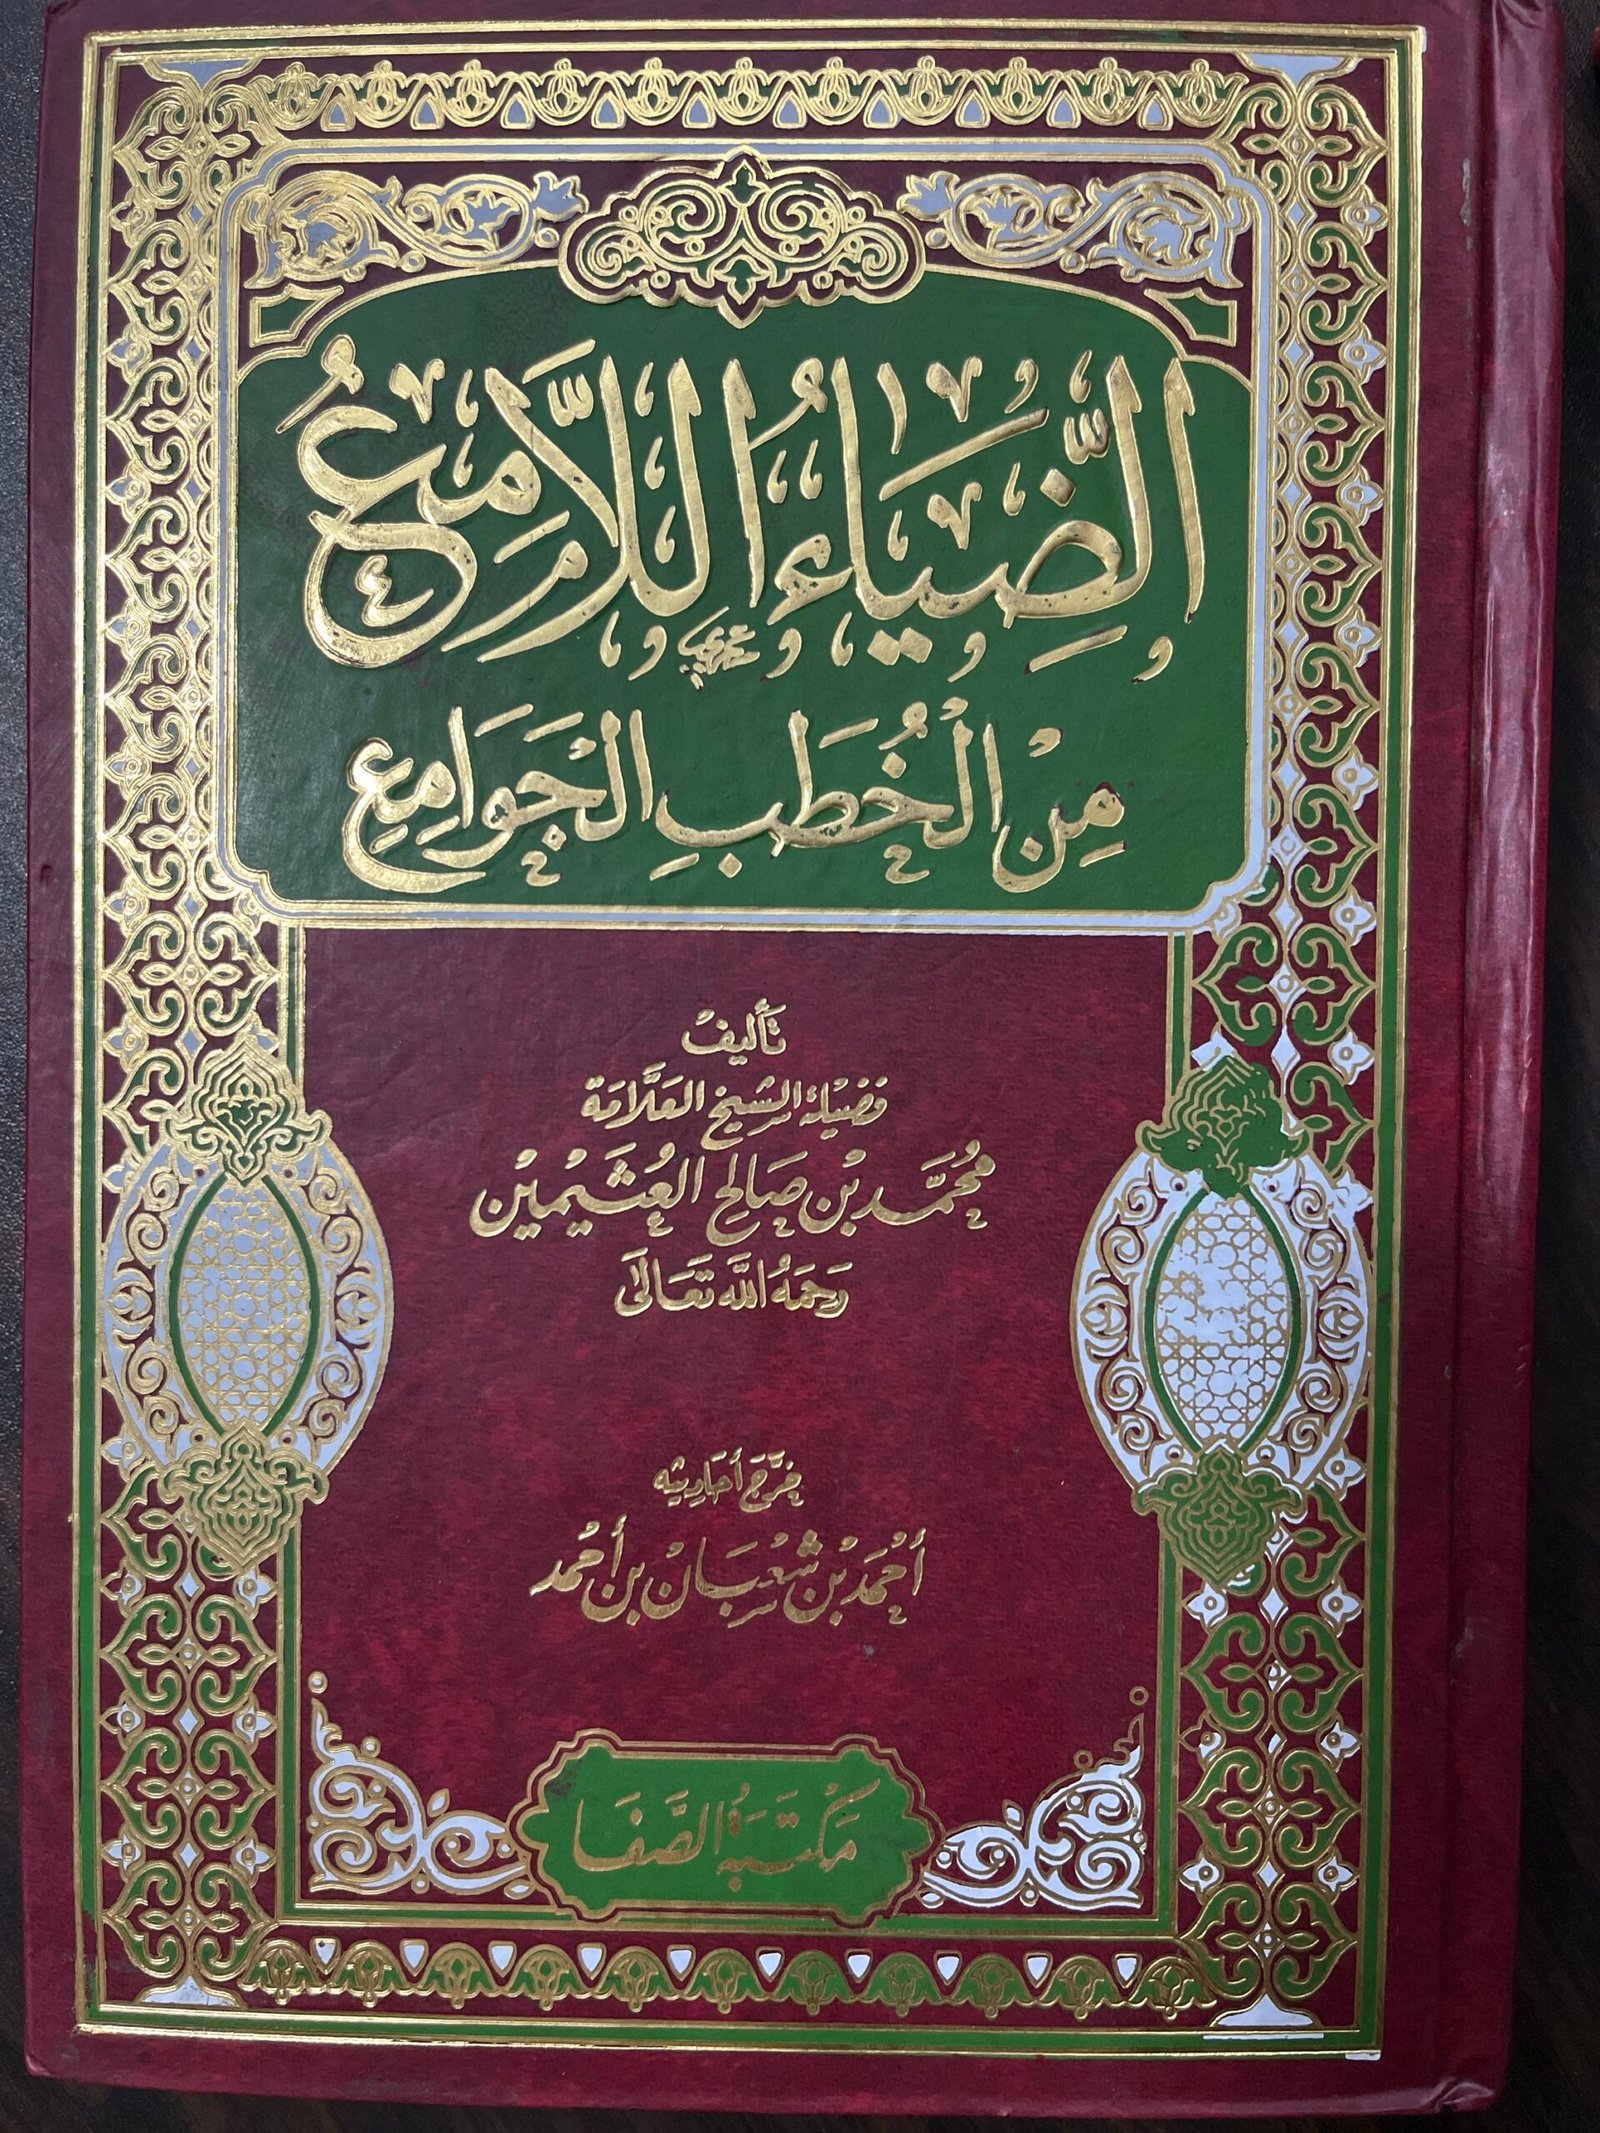 الضِّيَاءُ اللَّامِعُ
مِنَ الْخُطَبِ الْجَوَامِعِ
تَأليفُ
فضيلة الشيخ العَلَّامَة
مُحَمَّد بْن صَالِح العُثَيْمِيْن
رَحِمَهُ اللَّه تَعَالَى
خرَّجَ أحَاديثه
أحْمَد بْن شعْبَان بْن أحْمَد
مَكْتَبَةُ الصَّفَا